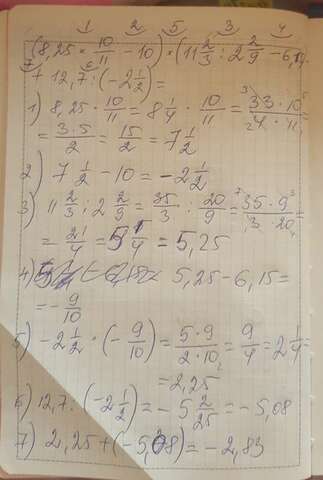 1 2 5 3 4
(8,25 × 10/11 - 10) × (11 2/3 : 2 2/9 - 6,14
7 6
+ 12,7 : (-2 1/2) =
1) 8,25 · 10/11 = 8 1/4 · 10/11 = 33 · 10 / 4 · 11 =
= 3·5/2 = 15/2 = 7 1/2
2) 7 1/2 - 10 = -2 1/2
3) 11 2/3 : 2 2/9 = 35/3 : 20/9 = 35 · 9 / 3 · 20 =
= 21/4 = 5 1/4 = 5,25
4) 5,25 - 6,15 =
= - 9/10
5) -2 1/2 · (- 9/10) = 5·9/2·10 = 9/4 = 2 1/4 =
= 2,25
6) 12,7 : (-2 1/2) = - 5 2/25 = -5,08
7) 2,25 + (-5,08) = -2,83